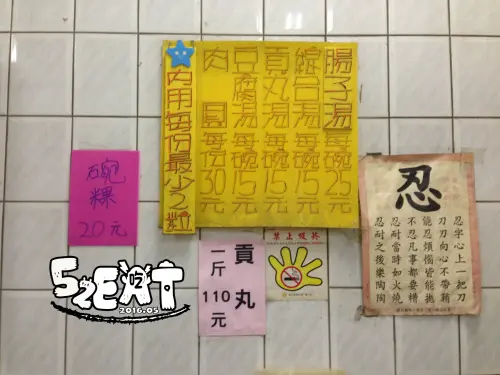 腸子湯每碗25元
綜合湯每碗15元
貢丸湯每碗15元
豆腐湯每碗15元
肉圓每份30元
內用每份最少2
碗粿
20元
貢丸
一斤110元
禁止吸菸
忍
忍字心上一把刀
刀刀向心不帶鞘
能忍煩惱皆能拋
不忍凡事都要糟
忍耐當時如火燒
忍耐之後樂陶陶
52EAT
吃
2016.05